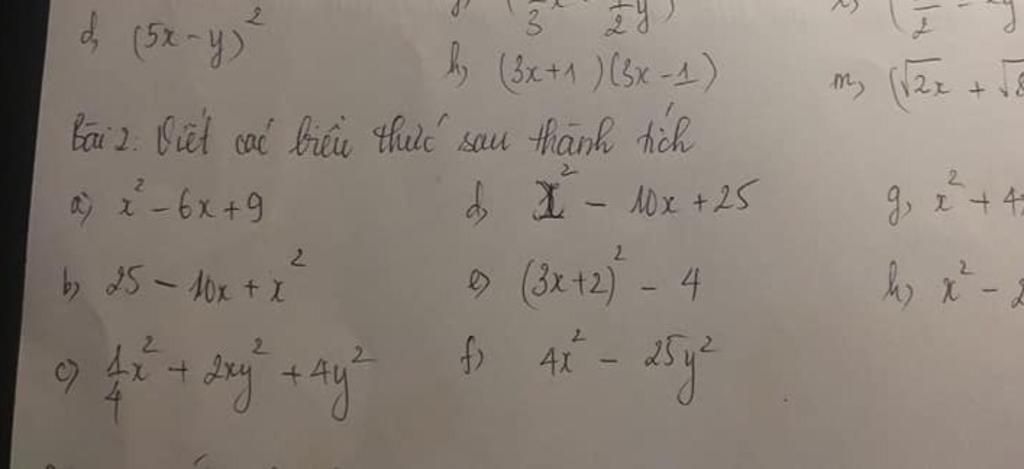 d, (5x-y)²
h, (3x+1)(3x-1)
m, (√2x + √8
Bài 2: Viết các biểu thức sau thành tích
a) x² - 6x + 9
d, x² - 10x + 25
g, x² + 4x
b, 25 - 10x + x²
e) (3x+2)² - 4
h, x² -
c) 1/4x² + 2xy² + 4y²
f) 4x² - 25y²